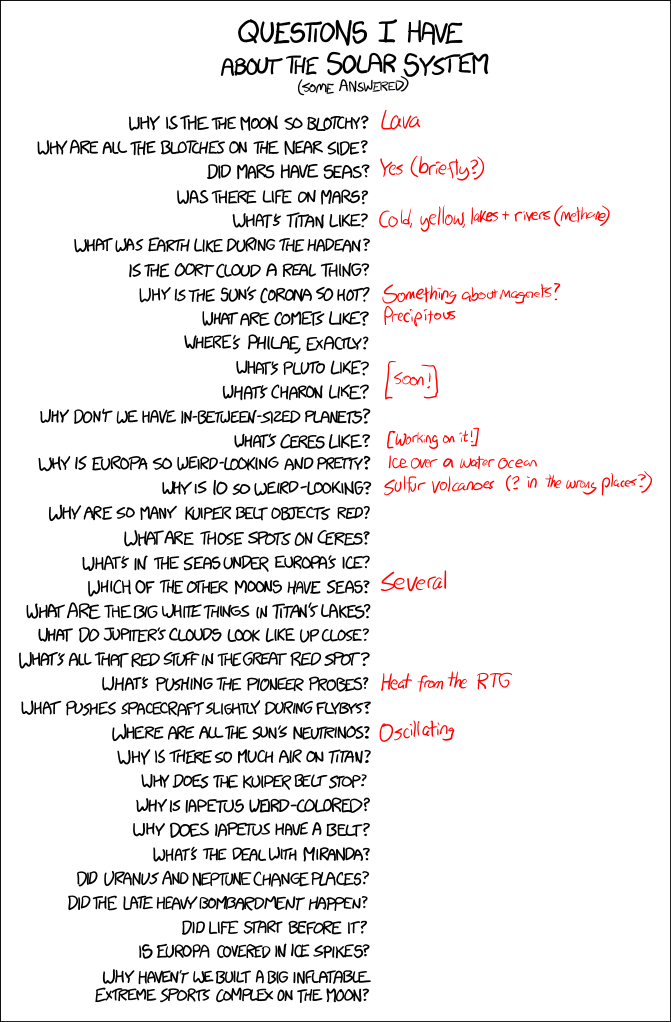 QUESTIONS I HAVE
ABOUT THE SOLAR SYSTEM
(SOME ANSWERED)
WHY IS THE THE MOON SO BLOTCHY? Lava
WHY ARE ALL THE BLOTCHES ON THE NEAR SIDE?
DID MARS HAVE SEAS? Yes (briefly?)
WAS THERE LIFE ON MARS?
WHAT'S TITAN LIKE? Cold, yellow, lakes + rivers (methane)
WHAT WAS EARTH LIKE DURING THE HADEAN?
IS THE OORT CLOUD A REAL THING?
WHY IS THE SUN'S CORONA SO HOT? Something about Magnets?
WHAT ARE COMETS LIKE? Precipitous
WHERE'S PHILAE, EXACTLY?
WHAT'S PLUTO LIKE? [Soon!]
WHAT'S CHARON LIKE?
WHY DON'T WE HAVE IN-BETWEEN-SIZED PLANETS?
WHAT'S CERES LIKE? [Working on it!]
WHY IS EUROPA SO WEIRD-LOOKING AND PRETTY? Ice over a water ocean
WHY IS IO SO WEIRD-LOOKING? Sulfur volcanoes (? in the wrong places?)
WHY ARE SO MANY KUIPER BELT OBJECTS RED?
WHAT ARE THOSE SPOTS ON CERES?
WHAT'S IN THE SEAS UNDER EUROPA'S ICE?
WHICH OF THE OTHER MOONS HAVE SEAS? Several
WHAT ARE THE BIG WHITE THINGS IN TITAN'S LAKES?
WHAT DO JUPITER'S CLOUDS LOOK LIKE UP CLOSE?
WHAT'S ALL THAT RED STUFF IN THE GREAT RED SPOT?
WHAT'S PUSHING THE PIONEER PROBES? Heat from the RTG
WHAT PUSHES SPACECRAFT SLIGHTLY DURING FLYBYS?
WHERE ARE ALL THE SUN'S NEUTRINOS? Oscillating
WHY IS THERE SO MUCH AIR ON TITAN?
WHY DOES THE KUIPER BELT STOP?
WHY IS IAPETUS WEIRD-COLORED?
WHY DOES IAPETUS HAVE A BELT?
WHAT'S THE DEAL WITH MIRANDA?
DID URANUS AND NEPTUNE CHANGE PLACES?
DID THE LATE HEAVY BOMBARDMENT HAPPEN?
DID LIFE START BEFORE IT?
IS EUROPA COVERED IN ICE SPIKES?
WHY HAVEN'T WE BUILT A BIG INFLATABLE
EXTREME SPORTS COMPLEX ON THE MOON?